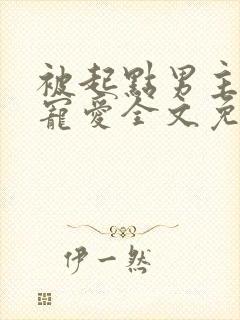 被起點男主
寵愛全文免
伊一然